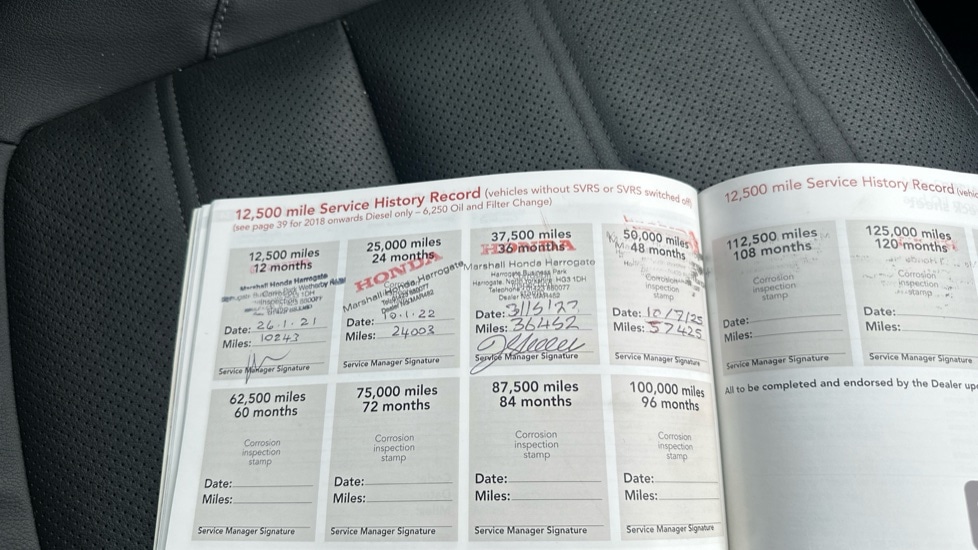 12,500 mile Service History Record (vehicles without SVRS or SVRS switched off)
(see page 39 for 2018 onwards Diesel only – 6,250 Oil and Filter Change)
12,500 miles
12 months
Marshall Honda Harrogate
Date: 26.1.21
Miles: 10243
Service Manager Signature
25,000 miles
24 months
HONDA
Marshall Honda, Harrogate
Date: 10.1.22
Miles: 24003
Service Manager Signature
37,500 miles
36 months
HONDA
Marshall Honda Harrogate
Harrogate Business Park
Date:
Miles: 36452
Service Manager Signature
50,000 miles
48 months
Corrosion
inspection
stamp
Date: 10/7/25
Miles: 57425
Service Manager Signature
62,500 miles
60 months
Corrosion
inspection
stamp
Date:
Miles:
Service Manager Signature
75,000 miles
72 months
Corrosion
inspection
stamp
Date:
Miles:
Service Manager Signature
87,500 miles
84 months
Corrosion
inspection
stamp
Date:
Miles:
Service Manager Signature
100,000 miles
96 months
Corrosion
inspection
stamp
Date:
Miles:
Service Manager Signature
12,500 mile Service History Record
112,500 miles
108 months
Corrosion
inspection
stamp
Date:
Miles:
Service Manager Signature
125,000 miles
120 months
Corrosion
inspection
stamp
Date:
Miles:
Service Manager Signature
All to be completed and endorsed by the Dealer